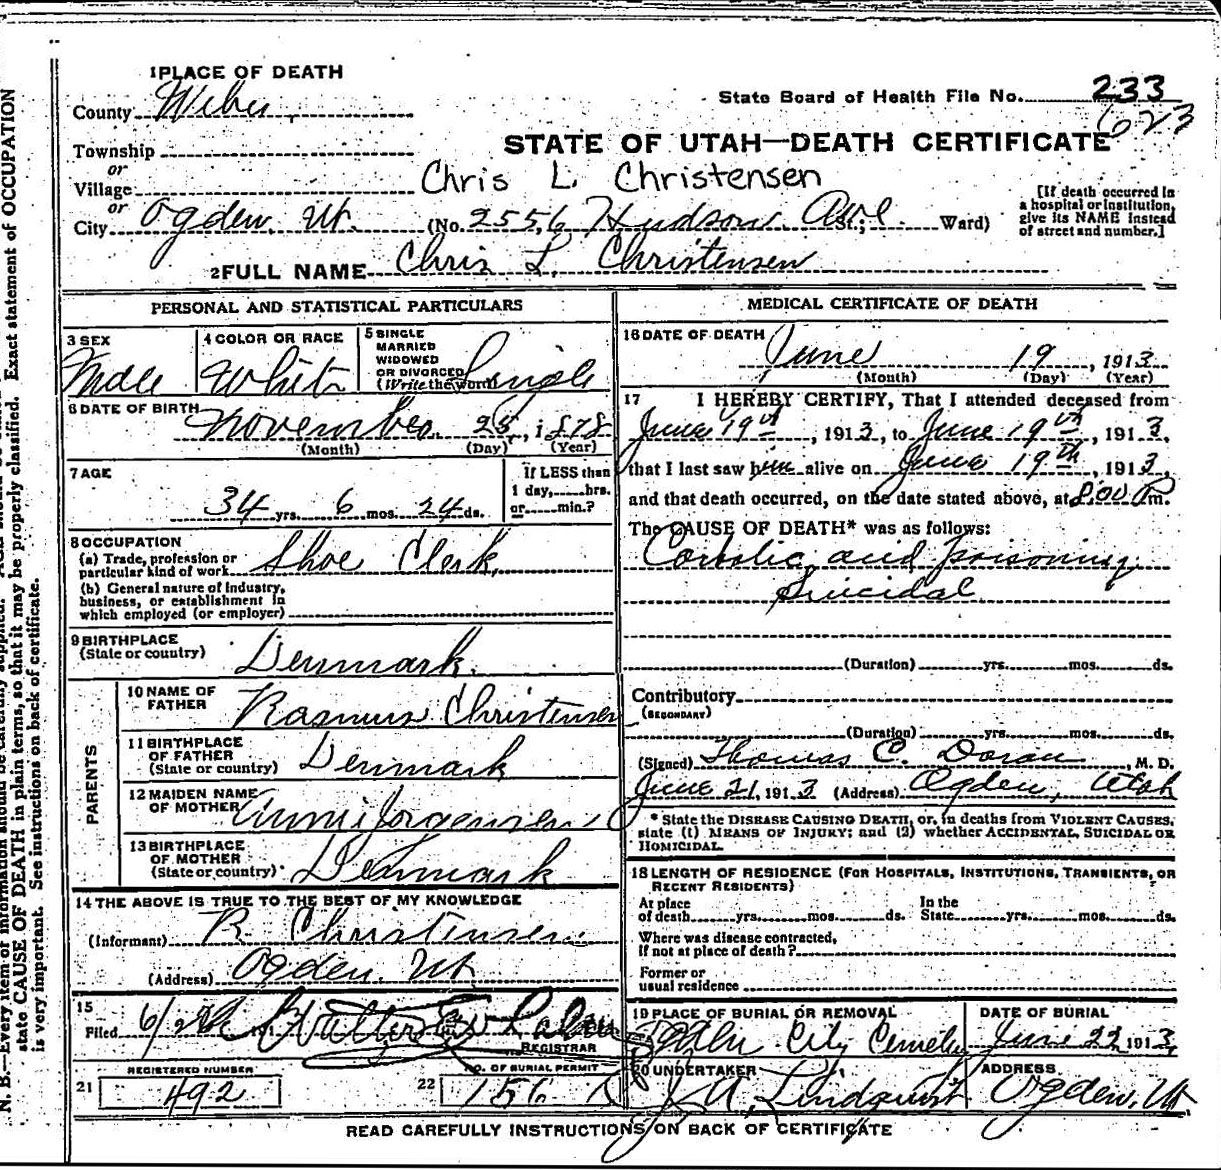 1 PLACE OF DEATH
County Weber
State Board of Health File No. 233
623
STATE OF UTAH—DEATH CERTIFICATE
Township
or
Village
Chris L. Christensen
or
City Ogden, Ut. (No. 2556 Hudson Ave. St.; Ward)
[If death occurred in
a hospital or institution,
give its NAME instead
of street and number.]
2 FULL NAME Chris L. Christensen
PERSONAL AND STATISTICAL PARTICULARS
3 SEX
Male
4 COLOR OR RACE
White
5 SINGLE
MARRIED
WIDOWED
OR DIVORCED
(Write the word)
Single
6 DATE OF BIRTH
November 25, 1878
(Month) (Day) (Year)
7 AGE
34 yrs. 6 mos. 24 ds.
If LESS than
1 day, hrs.
or min.?
8 OCCUPATION
(a) Trade, profession or
particular kind of work Shoe Clerk
(b) General nature of industry,
business, or establishment in
which employed (or employer)
9 BIRTHPLACE
(State or country) Denmark.
PARENTS
10 NAME OF
FATHER Rasmus Christensen
11 BIRTHPLACE
OF FATHER
(State or country) Denmark
12 MAIDEN NAME
OF MOTHER Annie Jorgensen
13 BIRTHPLACE
OF MOTHER
(State or country) Denmark
14 THE ABOVE IS TRUE TO THE BEST OF MY KNOWLEDGE
(Informant) R Christensen
(Address) Ogden, Ut
15
Filed 6/ 191 Walter
REGISTRAR
REGISTERED NUMBER
21 492
NO. OF BURIAL PERMIT
22 156
MEDICAL CERTIFICATE OF DEATH
16 DATE OF DEATH
June 19, 1913
(Month) (Day) (Year)
17 I HEREBY CERTIFY, That I attended deceased from
June 19th, 1913, to June 19th, 1913,
that I last saw him alive on June 19th, 1913,
and that death occurred, on the date stated above, at 8:00 P m.
The CAUSE OF DEATH* was as follows:
Carbolic acid poisoning
Suicidal
(Duration) yrs. mos. ds.
Contributory
(SECONDARY)
(Duration) yrs. mos. ds.
(Signed) Thomas C. Doran, M. D.
June 21, 1913 (Address) Ogden, Utah
* State the DISEASE CAUSING DEATH, or, in deaths from VIOLENT CAUSES,
state (1) MEANS OF INJURY; and (2) whether ACCIDENTAL, SUICIDAL OR
HOMICIDAL.
18 LENGTH OF RESIDENCE (FOR HOSPITALS, INSTITUTIONS, TRANSIENTS, OR
RECENT RESIDENTS)
At place
of death yrs. mos. ds.
In the
State yrs. mos. ds.
Where was disease contracted,
If not at place of death?
Former or
usual residence
19 PLACE OF BURIAL OR REMOVAL
City Cemetery
DATE OF BURIAL
June 22 1913
20 UNDERTAKER
J. A. Lindquist
ADDRESS
Ogden, Ut
READ CAREFULLY INSTRUCTIONS ON BACK OF CERTIFICATE
N. B.—Every item of information should be carefully supplied.
state CAUSE OF DEATH in plain terms, so that it may be properly classified. Exact statement of OCCUPATION
is very important. See instructions on back of certificate.